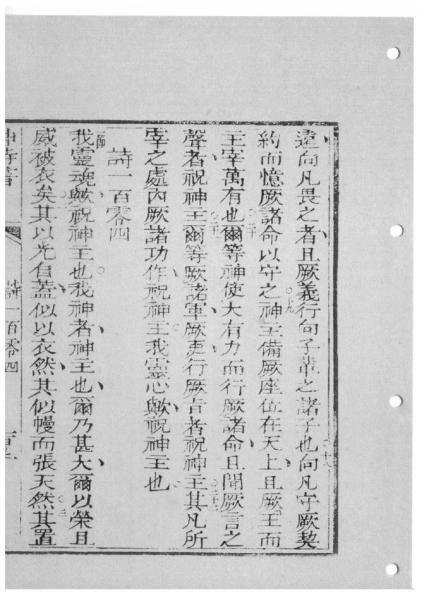 違向凡畏之者且厥義行向子輩之諸子也向凡守厥契
約而憶厥諸命以守之神主備厥座位在天上且厥王而
王宰萬有也爾等神使大有力而行厥諸命且聞厥言之
聲者祝神主爾等厥諸軍厥吏行厥旨者祝神主其凡所
宰之處內厥諸功作祝神主我靈心歟祝神主也
詩一百零四
我靈魂歟祝神主也我神者神主也爾乃甚大爾以榮且
威被衣矣其以光自蓋似以衣然其似幔而張天然其置
神詩書 詩一百零四